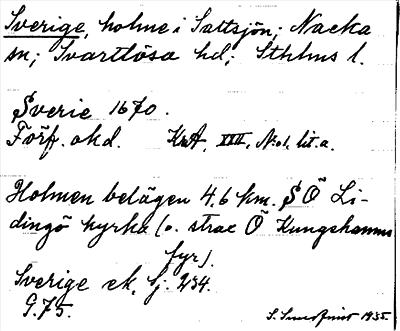 Sverige, holme i Saltsjön; Nacka
sn; Svartlösa hd; Sthlms l.
Sverie 1670.
Förf. okd. KrA, XIII, No 1. lit. a.
Holmen belägen 4,6 km. S Ö Li-
dingö kyrka (o. strax Ö Kungshamns
fyr).
Sverige ek. bj. 234.
G. 75.
1955.